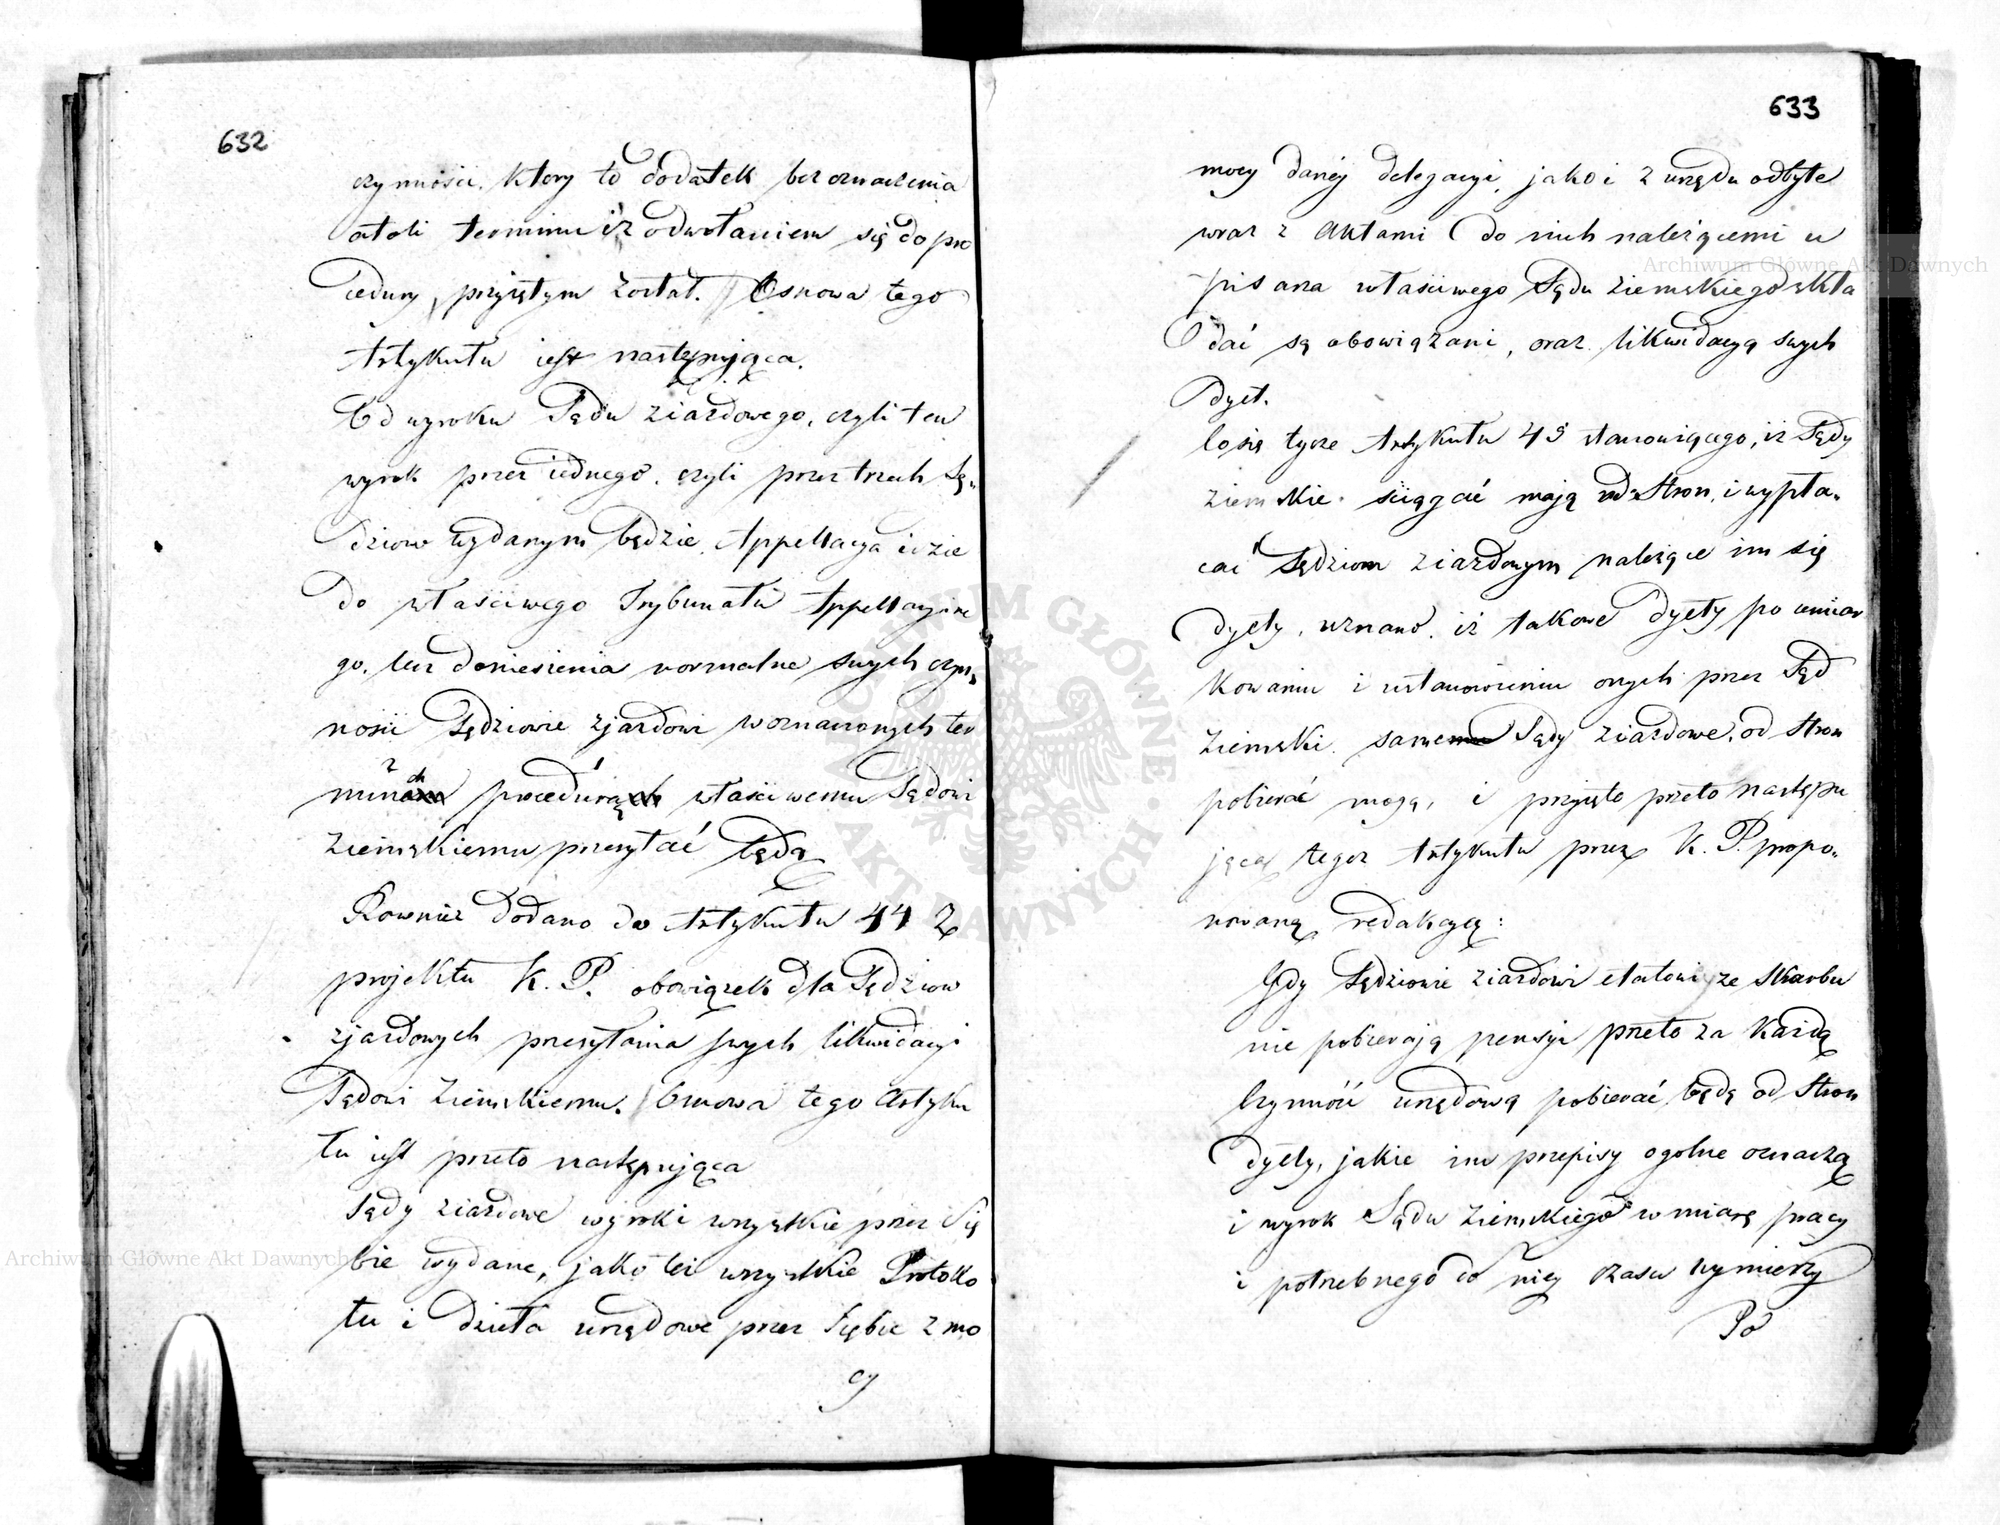 632
czynności. który to dodatek bez oznaczenia
atoli terminu i z odwołaniem się do pro
cedury, przyiętym został. Osnowa tego
Artykułu iest następująca.
Od wyroku Sądu ziazdowego, czyli ten
wyrok przez iednego, czyli przez trzech Sę„
dziow wydanym będzie, Appellacya idzie
do własciwego Trybunału Appellacyine
go, lecz doniesienia normalne swych czyn„
nosci Sędziowie zjazdowi w oznaczonych ter
minach procedurą własciwemu Sądowi
z
ziemskiemu przesyłać będą
Rownież dodano do Artykułu 44 z
projektu K. P. obowiązek dla Sędziow
zjazdowych przesyłania swych likwidacyi
Sądowi Ziemskiemu. Osnowa tego Artyku
łu iest przeto następująca
Sądy ziazdowe wyroki wszystkie przez Się
bie wydane, jako też wszystkie Protoko
łu i dzieła urzędowe przez Siębie z mo
cy
633
mocy danéy delegacyi, jako i z urzędu odbyte
wraz z Aktami do nich należącemi u
pisarza własciwego Sądu ziemskiego skła
dać są obowiązani, oraz likwidacyą swych
dyet.
Co się tycze Artykułu 45 stanowiącego, iż Sądy
ziemskie sciągać mają od Stron, i wypła„
cać Sędziom ziazdowym należące im się
dyety, uznano, iż takowe dyety po umiar
kowaniu i ustanowieniu onych przez Sąd
ziemski. same Sądy ziazdowe, od Stron
pobierać mogą, i przyięto przeto następu
jącą tegoż Artykułu przez K. P. propo„
nowaną redakcyą:
Gdy Sędziowie ziazdowi etatowi ze Skarbu
nie pobierają pensyi przeto za każdą
Czynność urzędową pobierać będą od Stron
dyety, jakie im przepisy ogolne oznaczą
i wyrok Sądu Ziemskiego w miarę pracy
i potrzebnego do niéy czasu wymierzy
Po
Archiwum Główne Akt Dawnych
Archiwum Główne Akt Dawnych
ARCHIWUM GŁÓWNE AKT DAWNYCH